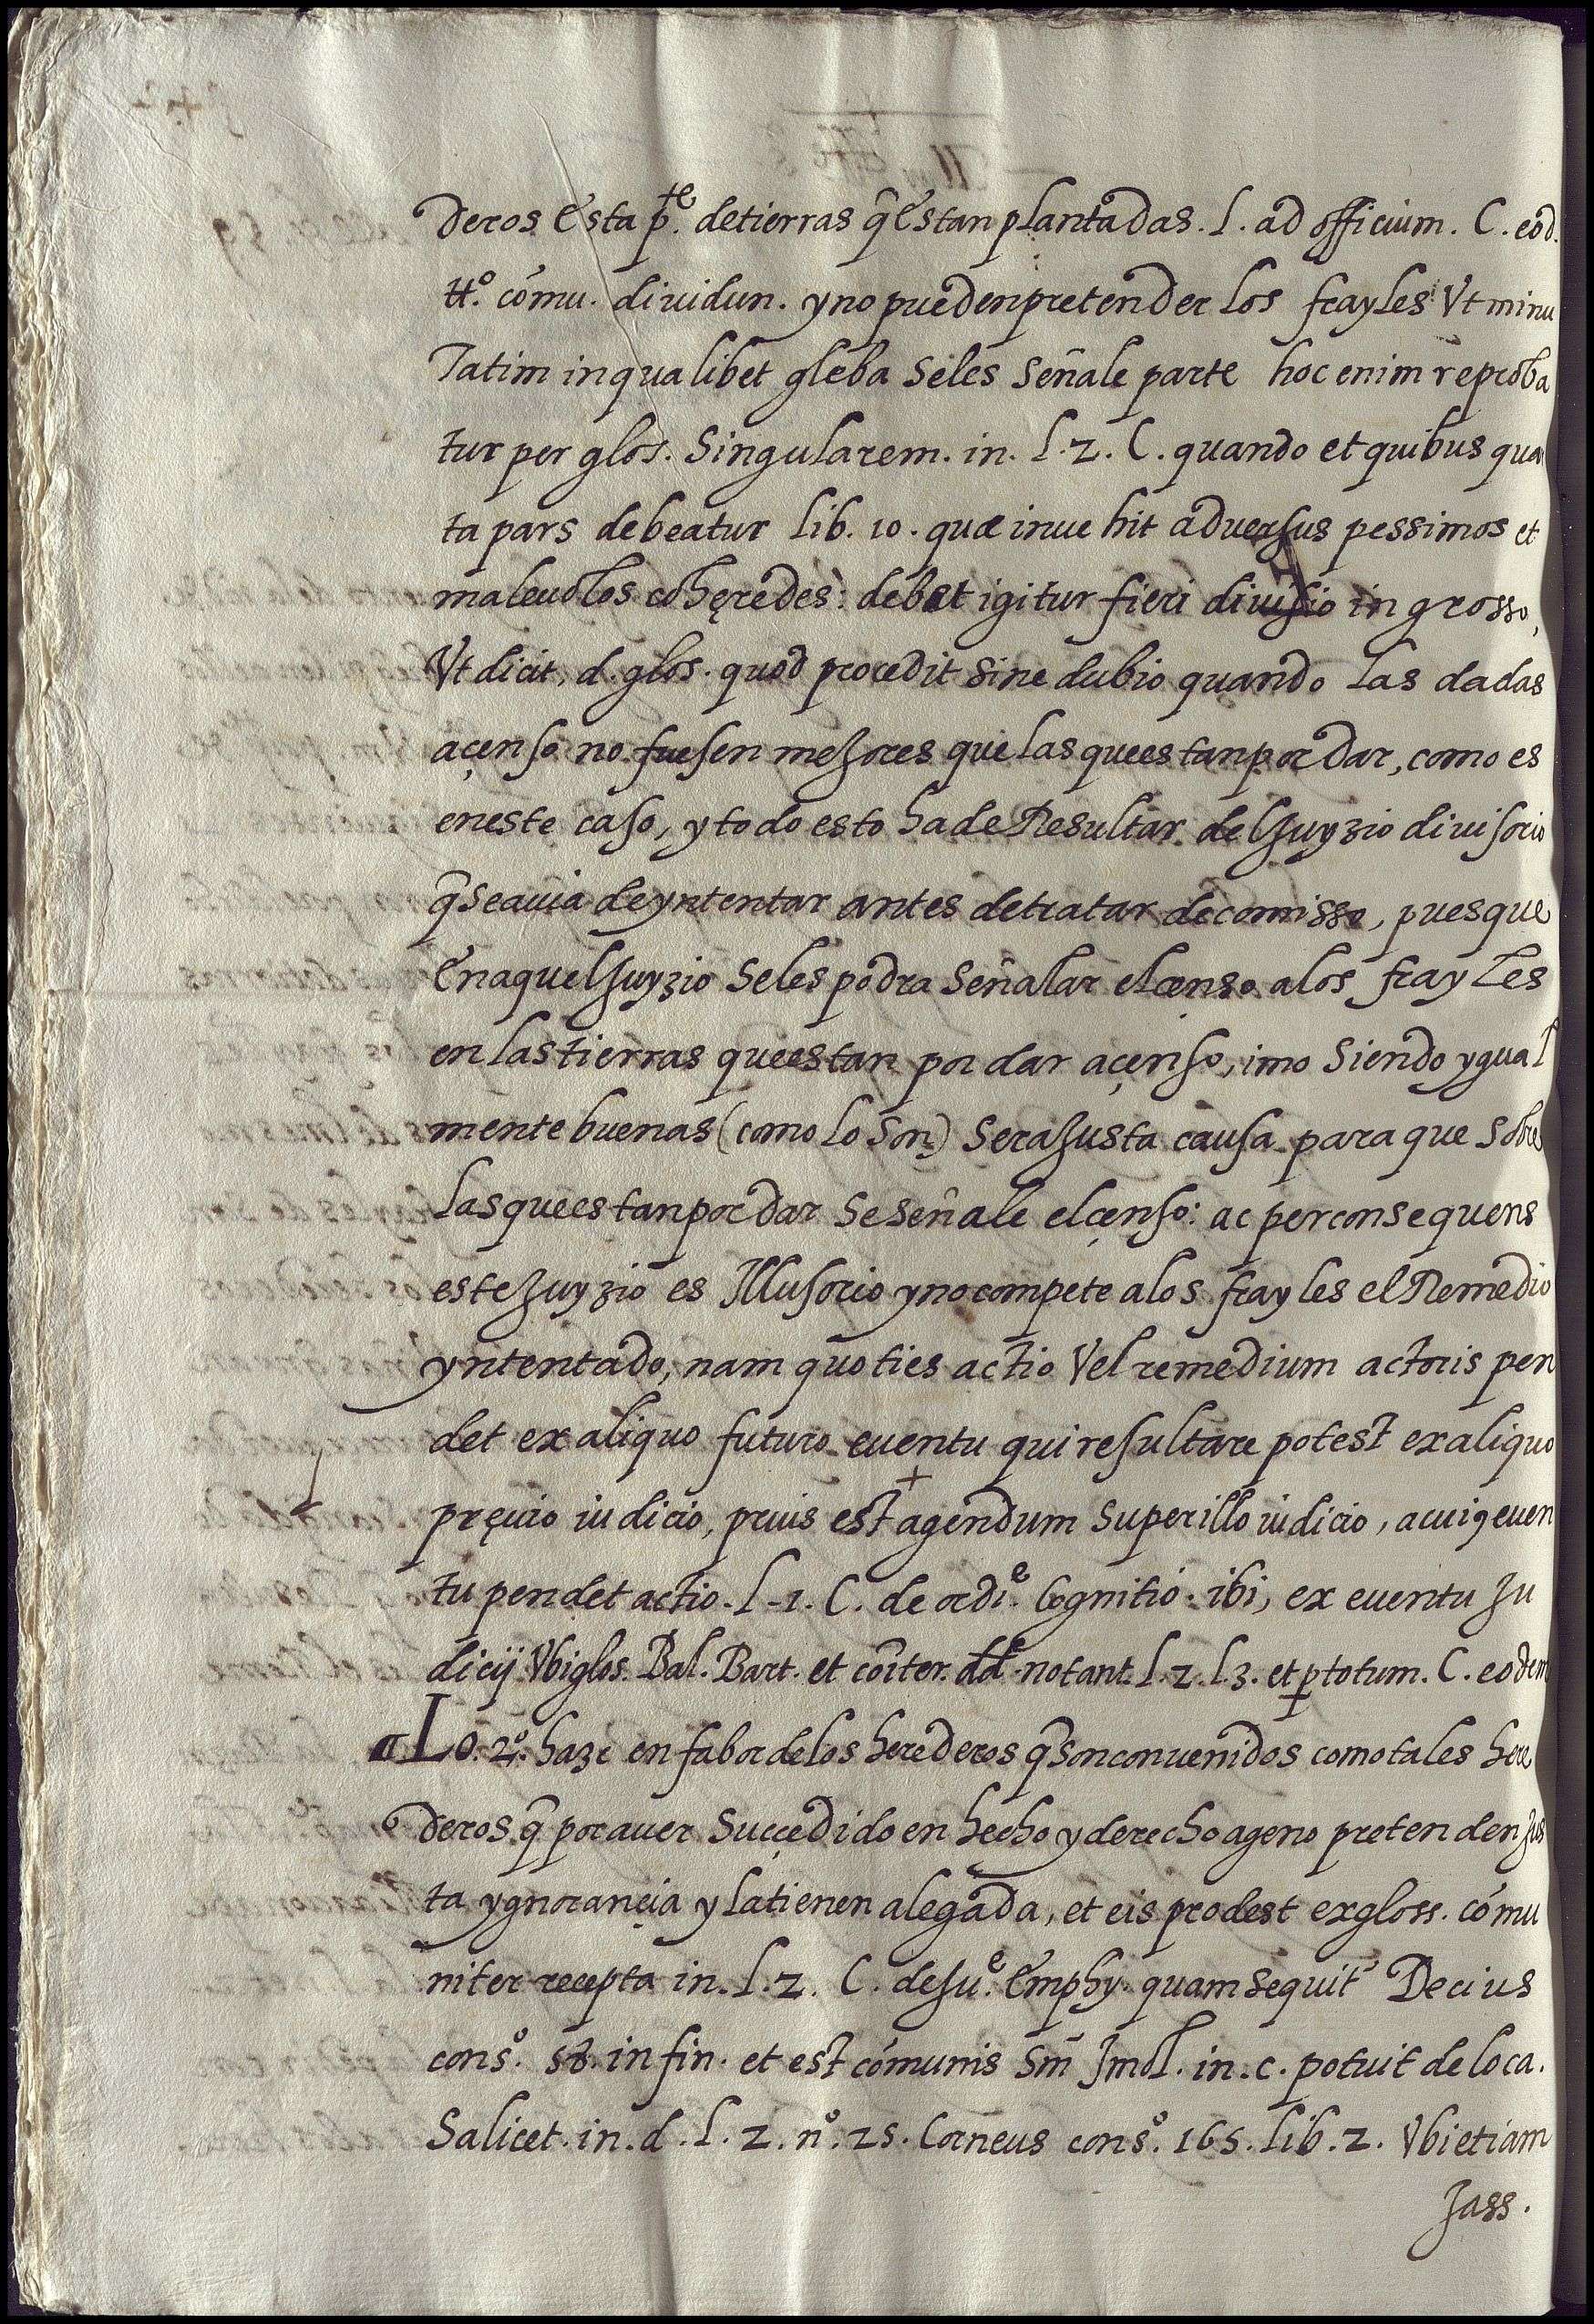 deros esta pte. de tierras q̃ estan plantadas. l. ad officium. C. eod.
tt.º cómu. diuidun. y no pueden pretender los frayles Vt minu
tatim in qualibet gleba se les señale parte hoc enim reproba
tur per glos. singularem. in. l. 2. C. quando et quibus quar
ta pars debeatur lib. 10. quæ inuehit aduersus pessimos et
maleuolos cohęredes: debet igitur fieri diuisio in grosso,
Vt dicit, d. glos. quod procedit sine dubio quando las dadas
açenso no fuesen mejores que las que estan por dar, como es
en este caso, y todo esto ha de Resultar del Juyzio diuisorio
q̃ se auia de yntentar antes de tratar de comisso, pues que
en aquel Juyzio se les podra señalar el çenso a los frayles
en las tierras que estan por dar açenso, imo siendo ygual
mente buenas (como lo son) sera Justa causa para que sobre
las que estan por dar se señale el çenso: ac per consequens
este Juyzio es Illusorio y no compete a los frayles el Remedio
yntentado, nam quoties actio Vel remedium actoris pen
det ex aliquo futuro euentu qui resultare potest ex aliquo
pręuio iudicio, prius est + agendum super illo iudicio, a cuiꝯ euen
tu pendet actio. l. 1. C. de ordie. Cognitió. ibi, ex euentu Ju
dicij Vbi glos. Bal. Bart. et cõiter. dd. notant. l. 2. l. 3. et ꝑ totum. C. eodem
Lo. 2º. haze en fabor de los herederos q̃ son conuenidos como tales here
deros q̃ por auer succedido en hecho y derecho ageno pretenden Jus
ta ygnorançia y la tienen alegada, et eis prodest ex gloss. cómu
niter recepta in. l. 2. C. de Jue. Emphy. quam sequit Decius
consº. 58. in fin. et est cómunis sm̃ Jmol. in. c. potuit de loca.
Salicet. in. d. l. 2. nº. 25. Corneus consº. 165. lib. 2. Vbi etiam
Jass.